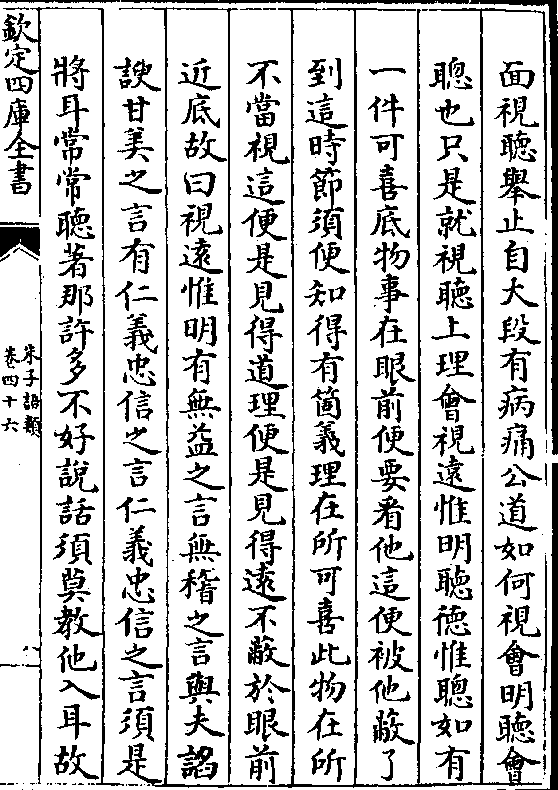 面視聽舉止自大段有病痛公道如何視會明聽會
聰也只是就視聽上理會視遠惟明聽德惟聰如有
一件可喜底物事在眼前便要看他這便被他蔽了
到這時節須便知得有箇義理在所可喜此物在所
不當視這便是見得道理便是見得遠不蔽於眼前
近底故曰視遠惟明有無益之言無稽之言與夫謟
諛甘美之言有仁義忠信之言仁義忠信之言須是
將耳常常聽著那許多不好說話須莫教他入耳故
欽定四庫全書
朱子語類
卷四十六
八